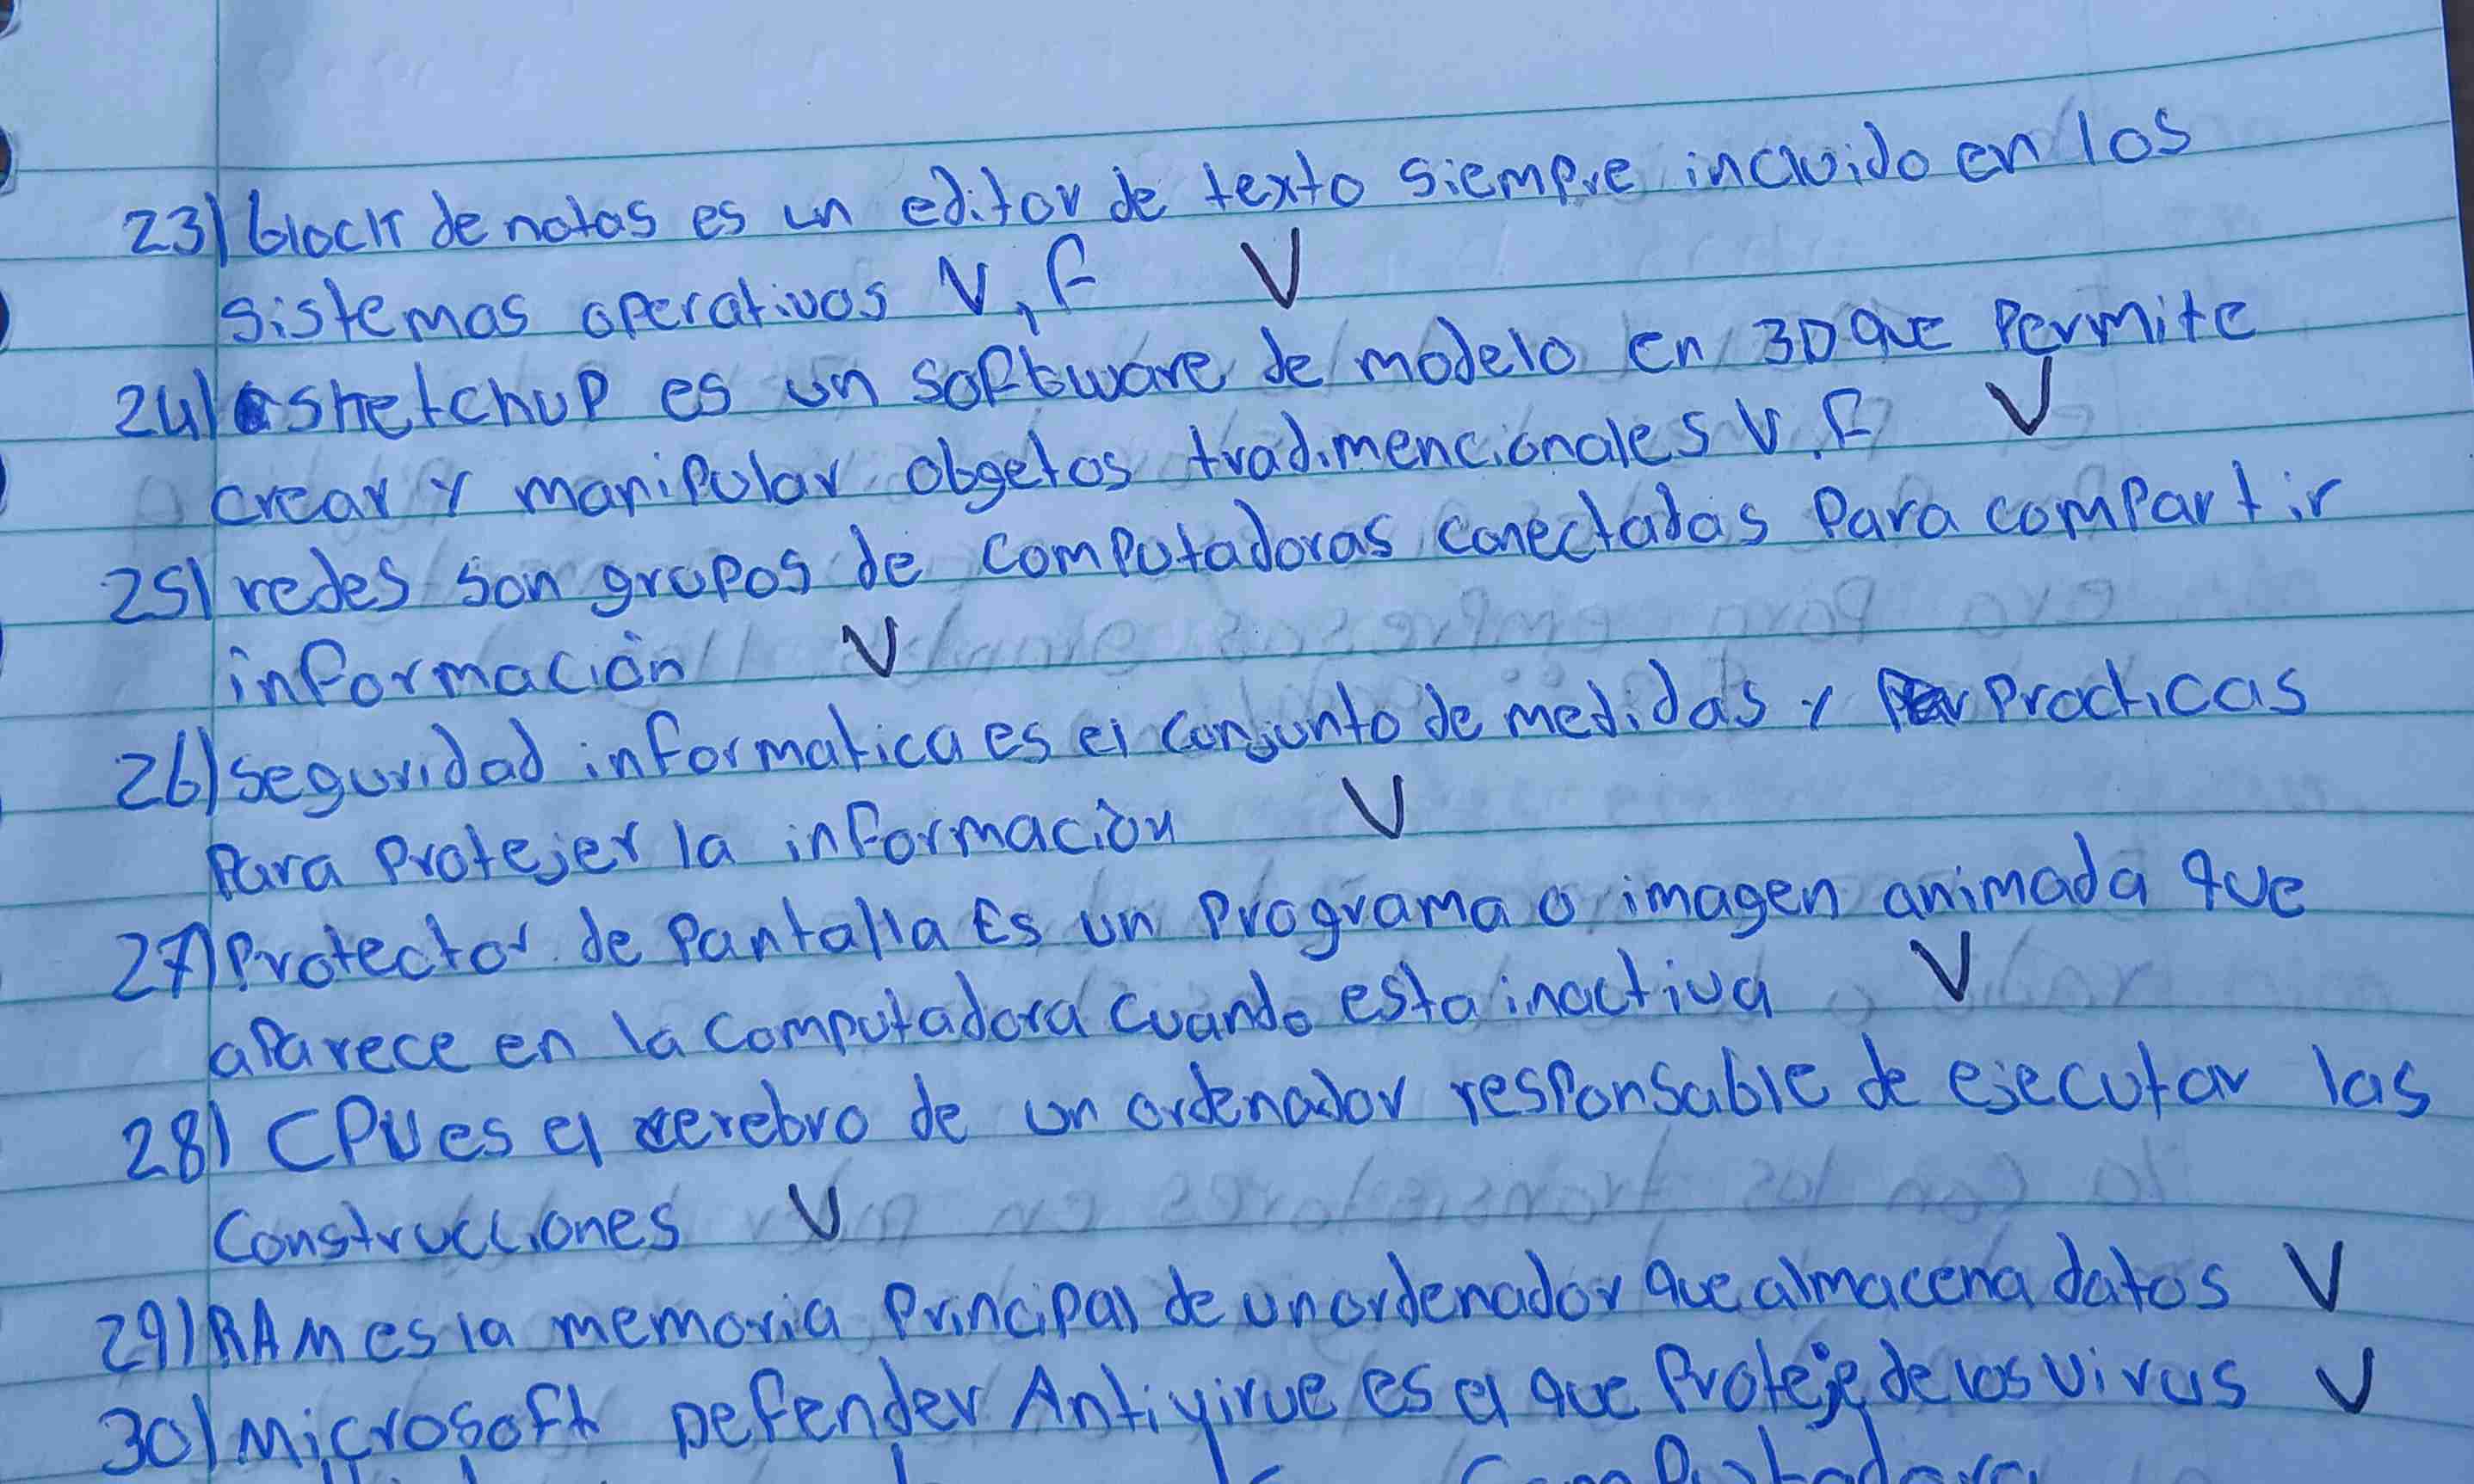 23) block de notas es un editor de texto siempre incluido en los
sistemas operativos V, F V
24) sketchup es un software de modelo en 3D que permite
crear y manipular obgetos tradimencionales V, F V
25) redes son grupos de computadoras conectadas para compartir
información V
26) seguridad informatica es el conjunto de medidas y practicas
Para protejer la información V
27) Protector de Pantalla Es un programa o imagen animada que
aparece en la computadora cuando esta inactiva V
28) CPU es el cerebro de un ordenador responsable de ejecutar las
construcciones V
29) RAM es la memoria principal de un ordenador que almacena datos V
30) Microsoft Defender Antivirue es el que Proteje de los virus V
Computadora